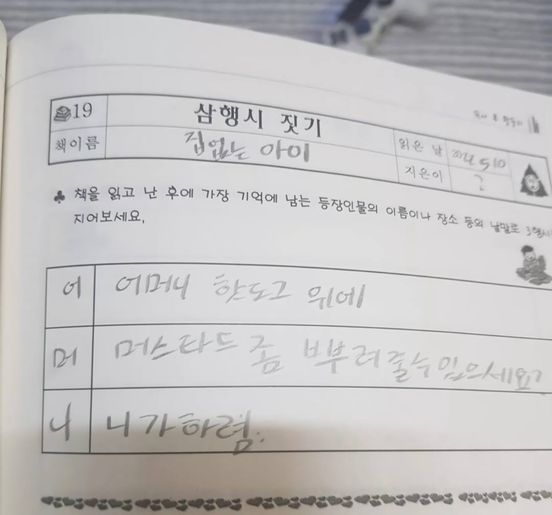 19 삼행시 짓기
책이름 집없는 아이 읽은 날 2024 5 10
지은이 ?
♣ 책을 읽고 난 후에 가장 기억에 남는 등장인물의 이름이나 장소 등의 낱말로 3행시
지어보세요.
어 어머니 핫도그 위에
머 머스타드 좀 뿌려줄수 있으세요?
나 니가하렴.